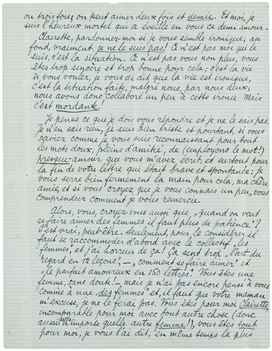 ou trois fois on peut aimer deux fois et demie. Et moi, je
suis l'heureux mortel qui a éveillé en vous ce demi-amour.
Clairette, pardonnez-moi si je vous semble ironique; au
fond, vraiment, je ne le suis pas! Ce n'est pas moi qui le
suis, c'est la situation. Ce n'est pas vous non plus, vous
êtes trop sincère et trop bonne pour cela, c'est la vie
si vous voulez, je vous ai dit que la vie est ironique,
c'est la situation faite, malgré nous, par nous deux,
nous avons donc collaboré un peu à cette ironie. Mais
c'est mordante.
Je pense ce que je dois vous répondre et je ne le sais pas.
Je n'en sais rien, je suis bien triste et pourtant, si vous
saviez comme je vous suis reconnaissant pour tous
les mots doux, pleins d'amitié, de (employons le mot!)
presque-amour que vous m'avez écrit et surtout pour
la fin de votre lettre qui était brave et spontanée; je
vous serre bien fermement la main pour cela, ma chère
amie, et si vous croyez que je vous connais un peu, vous
comprendrez comment je vous remercie.
Alors, vous croyez vous aussi que, "quand on veut
se faire aimer des femmes il faut plus de patience"?
C'est vrai, peut-être. Seulement, pour le considérer, il
faut se raccommoder d'abord avec le collectif "les
femmes", et j'ai horreur de ça. Ça sent trop "l'art du
regard en 12 leçons", "comment se faire aimer" et
"le parfait amoureux en 150 lettres". Vous êtes une
femme, sans doute — mais je n'ai pas encore pensé à vous
comme à une "des femmes" et, il faut que votre maman
m'excuse, je ne le ferai pas. Vous êtes pour moi Clairette
incomparable pour moi avec tout autre chose (donc
aussi n'importe quelle autre femme!), vous êtes tout
pour moi, je vous l'ai dit, en même temps la plus